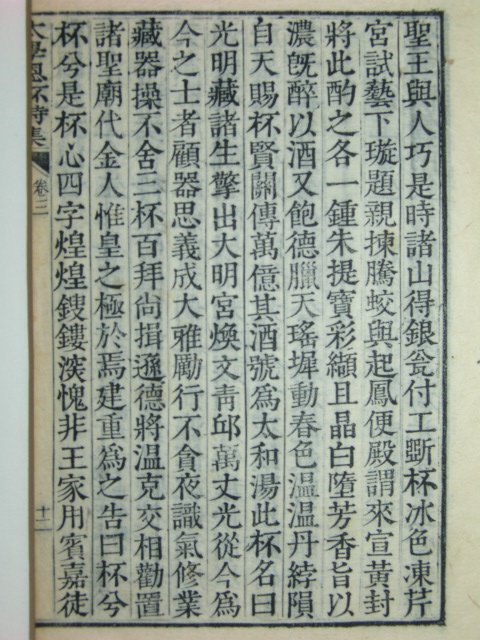 聖王與人巧是時諸山得銀瓮付工斲杯冰色凍芹
宮試藝下璇題親揀騰蛟與起鳳便殿謂來宣黃封
將此酌之各一鍾朱提寶彩纈且晶白墮芳香旨以
濃旣醉以酒又飽德臘天瑤墀動春色溫溫丹綍隕
自天賜杯賢關傳萬億其酒號爲太和湯此杯名曰
光明藏諸生擎出大明宮煥文靑邱萬丈光從今爲
今之士者顧器思義成大雅勵行不貪夜識氣修業
藏器操不舍三杯百拜尙揖遜德將温克交相勸置
諸聖廟代金人惟皇之極於焉建重爲之告曰杯兮
杯兮是杯心四字煌煌鎪鏤深愧非王家用賓嘉徒
太學恩杯詩集
卷三
十二